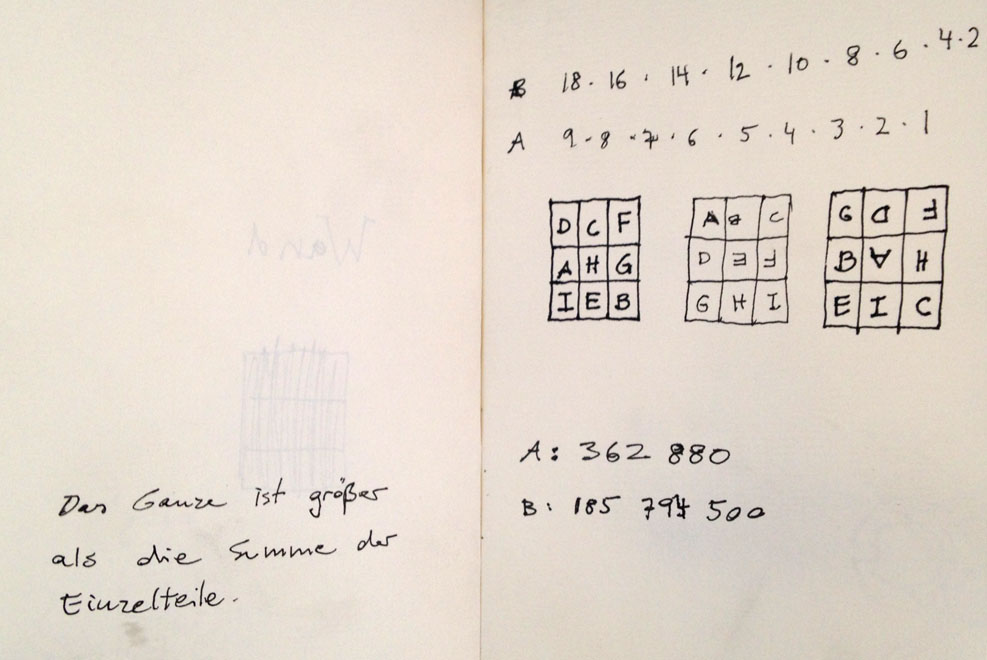 Wand
Das Ganze ist größer
als die Summe der
Einzelteile.
B 18 · 16 · 14 · 12 · 10 · 8 · 6 · 4 · 2
A 9 · 8 · 7 · 6 · 5 · 4 · 3 · 2 · 1
D C F
A H G
I E B
A B C
D E F
G H I
G D F
B A H
E I C
A: 362 880
B: 185 794 500